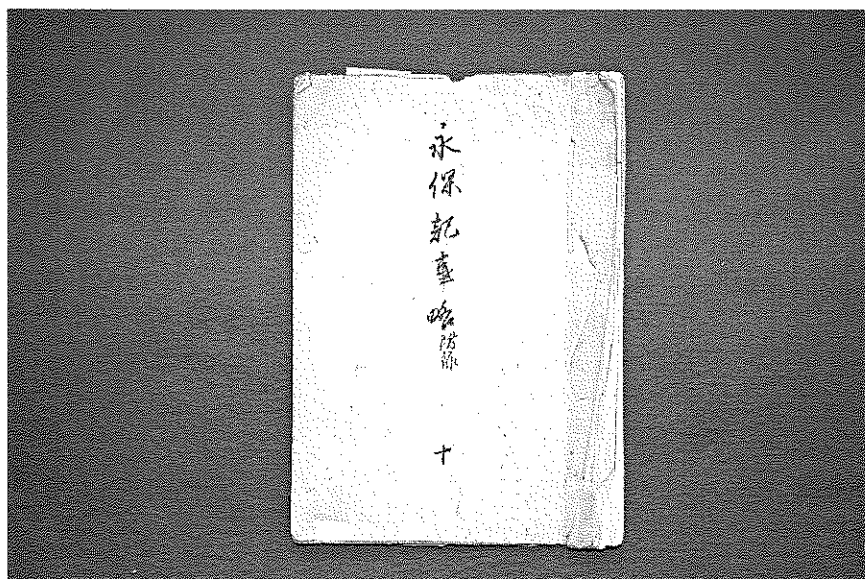 永保記事略附録
十